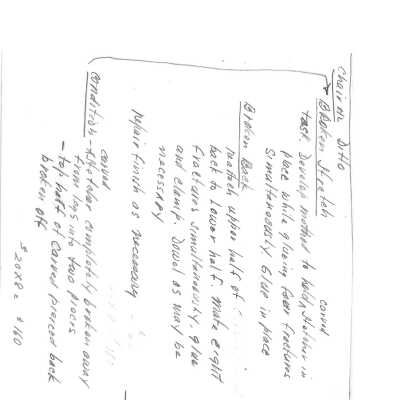 Chair No. Ditto
Broken Stretch
carved
task. Develop method to hold, Stretcher in
place while glueing four fractures
simultaneously Glue in place
Broken Back
reattach upper half of
back to lower half. Mate eight
fractures simultaneously, glue
and clamp. Dowel as may be
necessary
repair finish as necessary
carved
Condition - Stretcher completely broken away
from legs into two pieces
- top half of carved pierced back
broken off
$20x8 = $160